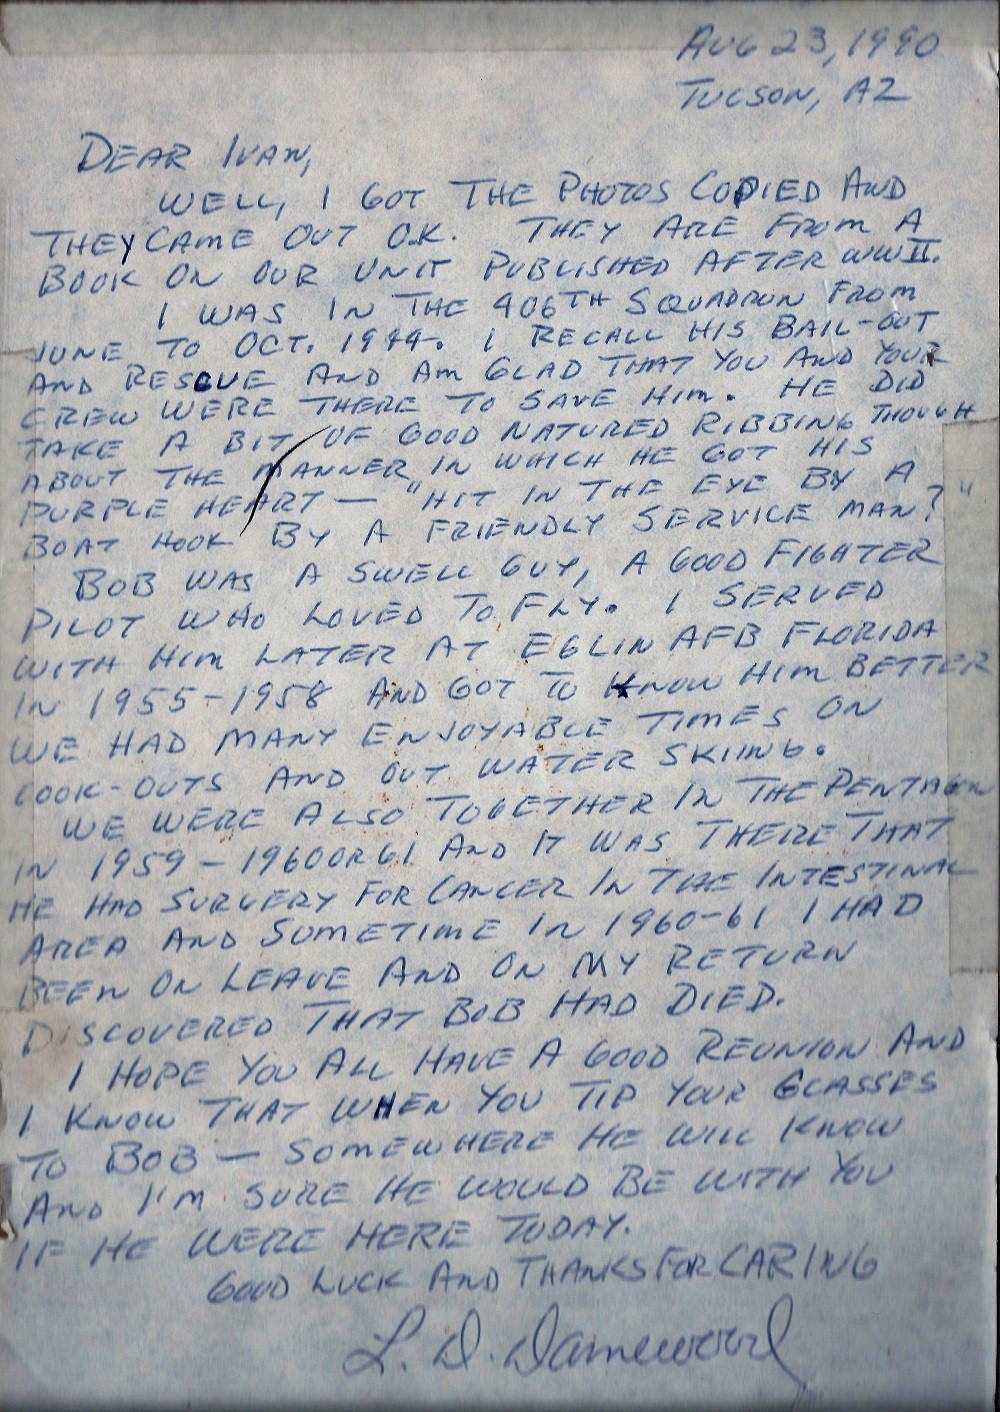 AUG 23, 1990
TUCSON, AZ
DEAR IVAN,
WELL, I GOT THE PHOTOS COPIED AND
THEY CAME OUT O.K. THEY ARE FROM A
BOOK ON OUR UNIT PUBLISHED AFTER WWII.
I WAS IN THE 406TH SQUADRON FROM
JUNE TO OCT. 1944. I RECALL HIS BAIL-OUT
AND RESCUE AND AM GLAD THAT YOU AND YOUR
CREW WERE THERE TO SAVE HIM. HE DID
TAKE A BIT OF GOOD NATURED RIBBING THOUGH
ABOUT THE MANNER IN WHICH HE GOT HIS
PURPLE HEART — "HIT IN THE EYE BY A
BOAT HOOK BY A FRIENDLY SERVICE MAN?"
BOB WAS A SWELL GUY, A GOOD FIGHTER
PILOT WHO LOVED TO FLY. I SERVED
WITH HIM LATER AT EGLIN AFB FLORIDA
IN 1955-1958 AND GOT TO KNOW HIM BETTER
WE HAD MANY ENJOYABLE TIMES ON
COOK-OUTS AND OUT WATER SKIING.
WE WERE ALSO TOGETHER IN THE PENTAGON
IN 1959-1960 OR 61 AND IT WAS THERE THAT
HE HAD SURGERY FOR CANCER IN THE INTESTINAL
AREA AND SOMETIME IN 1960-61 I HAD
BEEN ON LEAVE AND ON MY RETURN
DISCOVERED THAT BOB HAD DIED.
I HOPE YOU ALL HAVE A GOOD REUNION AND
I KNOW THAT WHEN YOU TIP YOUR GLASSES
TO BOB — SOMEWHERE HE WILL KNOW
AND I'M SURE HE WOULD BE WITH YOU
IF HE WERE HERE TODAY.
GOOD LUCK AND THANKS FOR CARING
L. D. Damewood